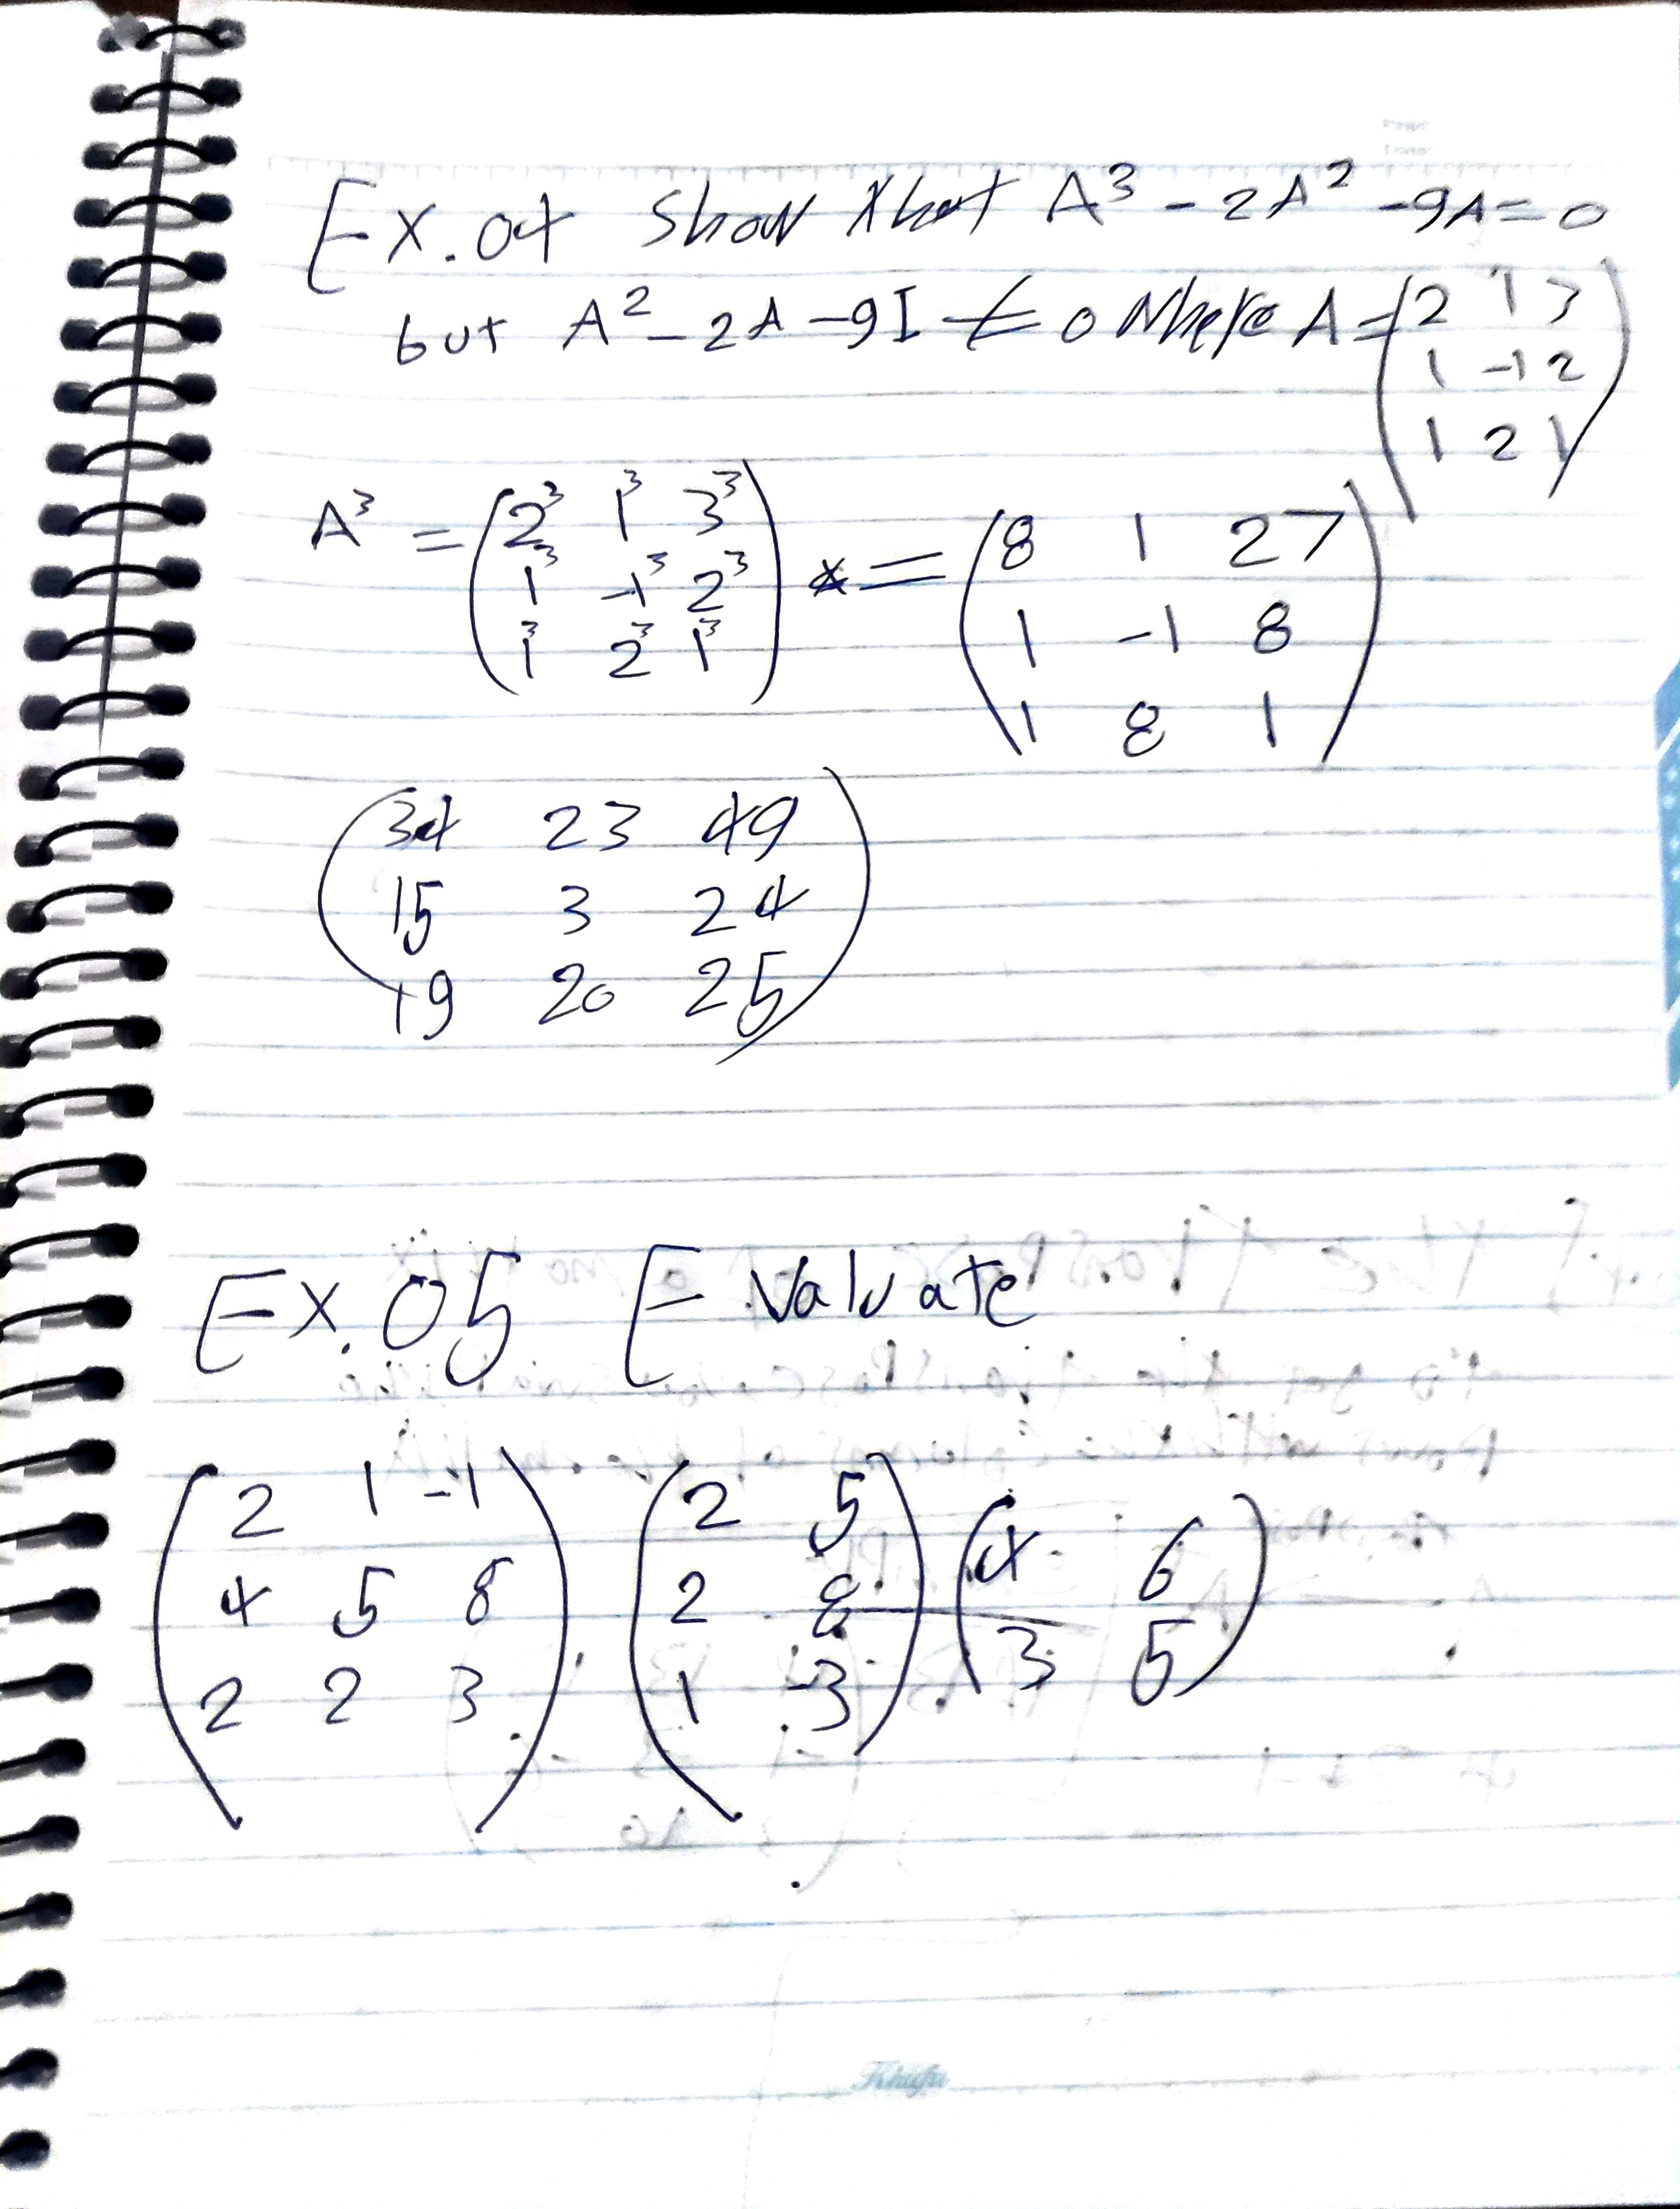 Ex.04 Show that A³ - 2A² - 9A = 0
but A² - 2A - 9I ≠ 0 where A = (2 1 3
1 -1 2
1 2 1)
A³ = (2³ 1³ 3³
1³ -1³ 2³
1³ 2³ 1³) = (8 1 27
1 -1 8
1 8 1)
(34 23 49
15 3 24
19 20 25)
Ex.05 Evaluate
(2 1 -1
4 5 8
2 2 3) (2 5
2 8
1 -3) (4 6
3 5)
Khufu